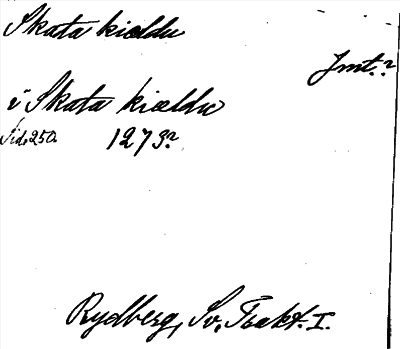 Skata kiældu
Jmt.?
i Skata kiældu
Sid. 250. 1273?
Rydberg, Sv. Trakt. I.